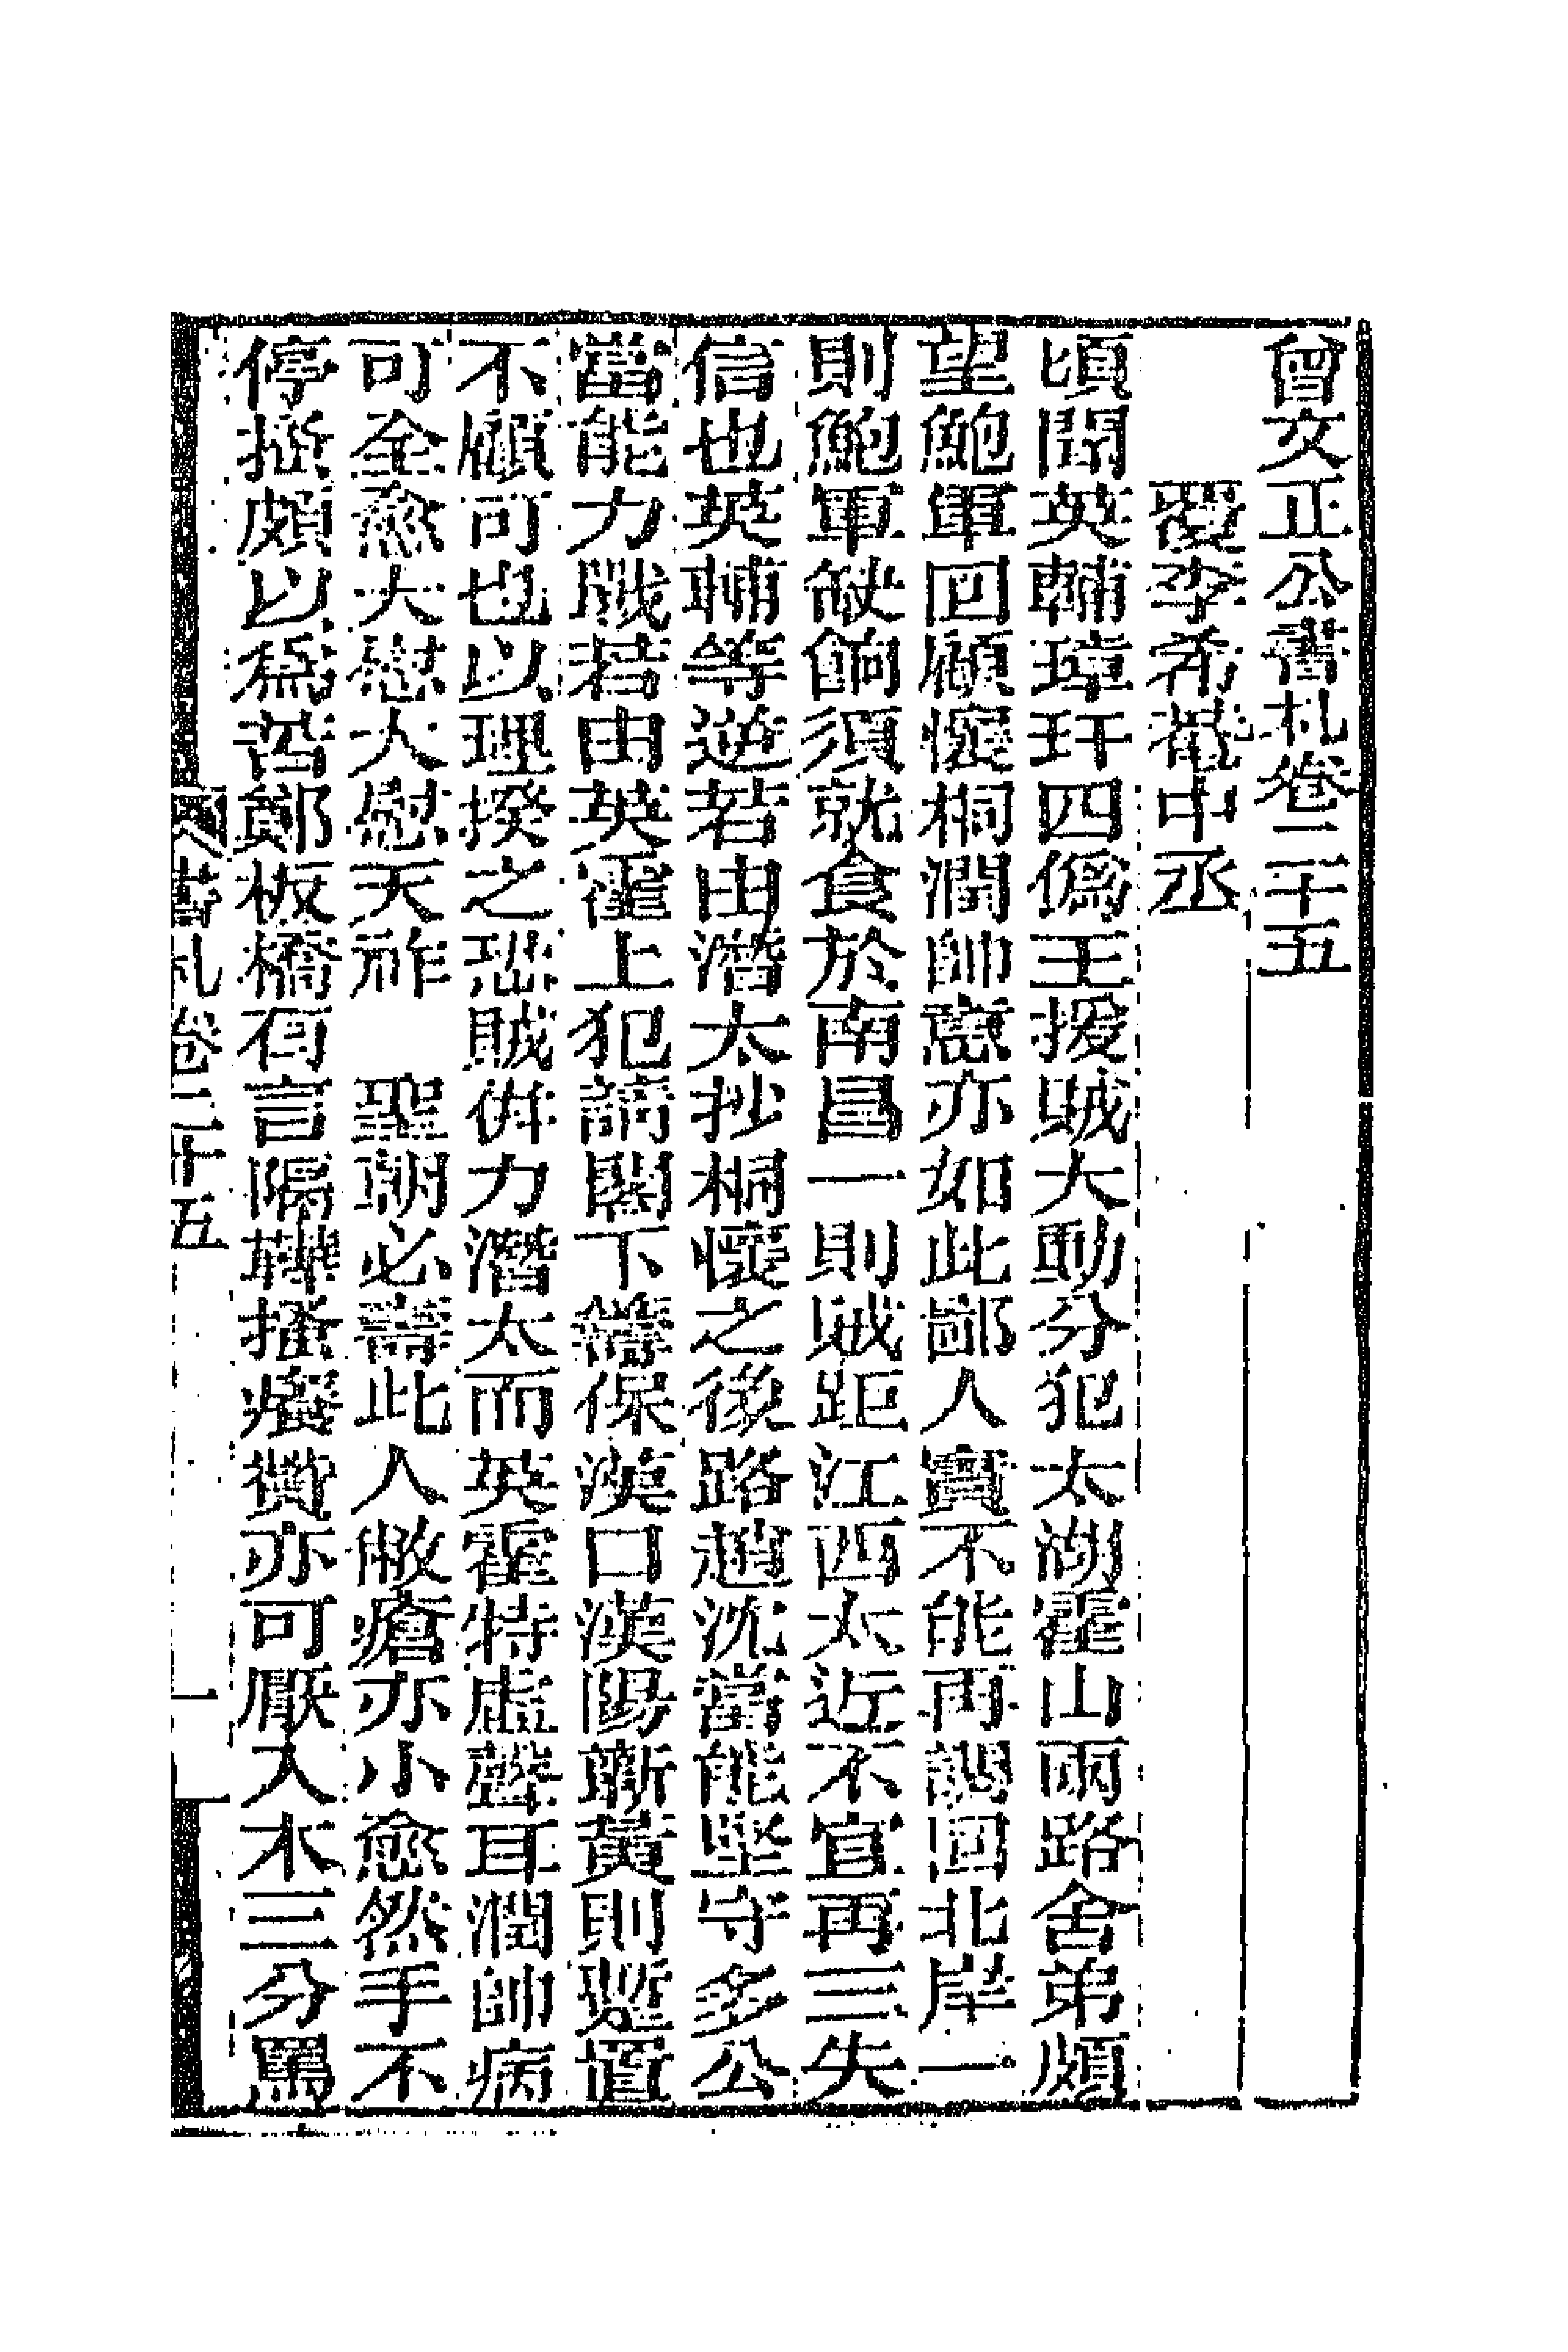 曾文正公書札卷二十五
覆李希菴中丞
頃聞英輔璋玕四僞王援賊大動分犯太湖霍山兩路舍弟頗
望鮑軍回顧懷桐潤帥意亦如此鄙人實不能再調回北岸一
則鮑軍缺餉須就食於南昌一則賊距江西太近不宜再三失
信也英輔等逆若由潛太抄桐懷之後路趙沈當能堅守多公
當能力戰若由英霍上犯請閣下籌保漢口漢陽蘄黃則蹔置
不顧可也以理揆之恐賊併力潛太而英霍特虛聲耳潤帥病
可全愈大慰大慰天祚 聖朝必壽此人敝瘡亦小愈然手不
停搔頗以爲苦鄭板橋有言隔鞾搔癢贊亦可厭入木三分罵
書札卷二十五 一